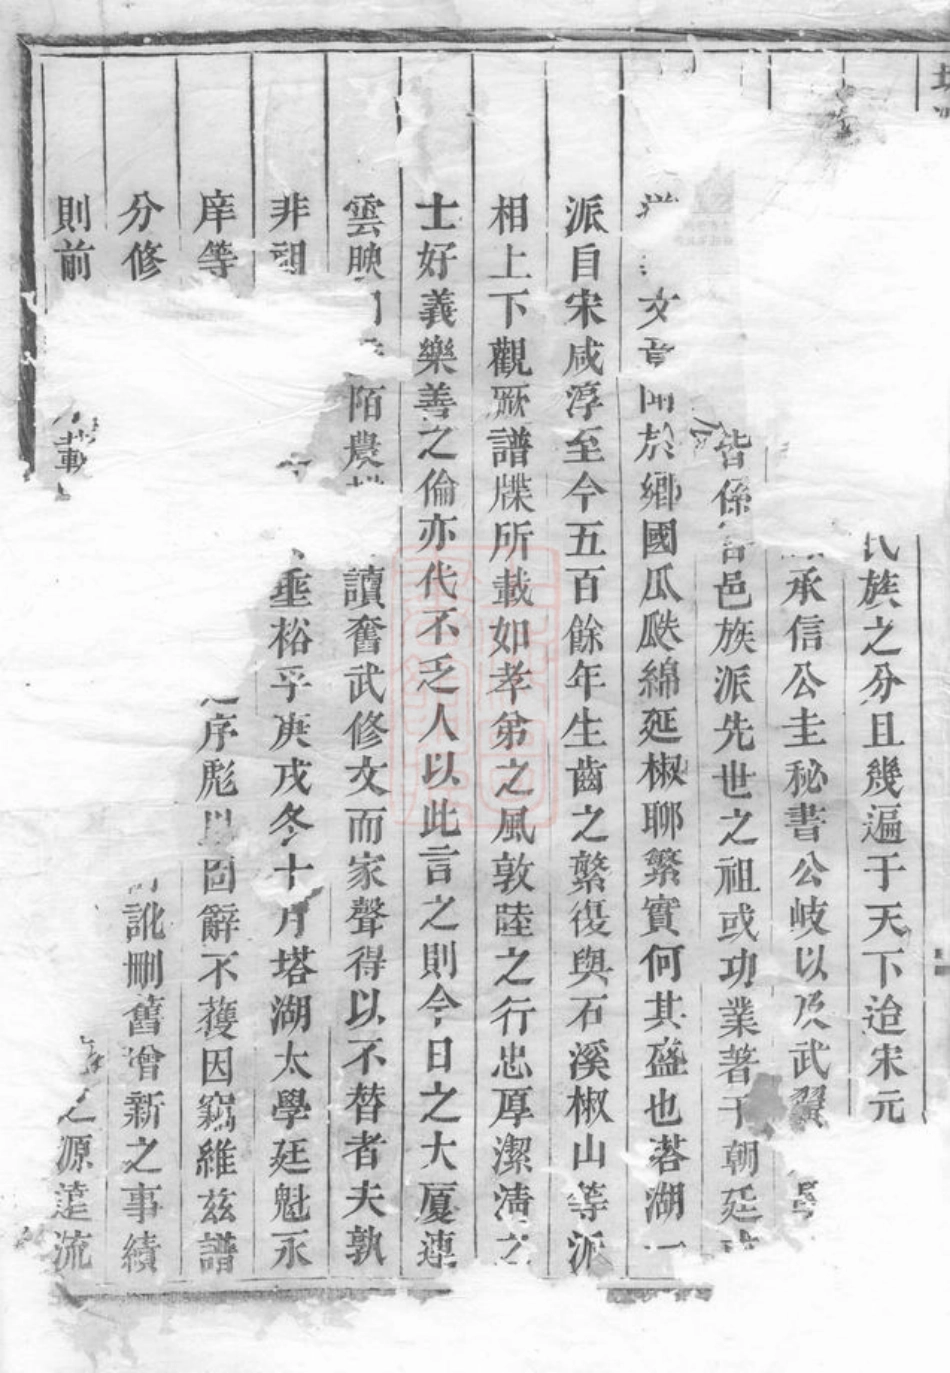 氏族之分且幾遍于天下迨宋元
承信公圭秘書公岐以及武翼
皆係吾邑族派先世之祖或功業著于朝廷或
文章聞於鄉國瓜瓞綿延椒聊繁實何其盛也塔湖一
派自宋咸淳至今五百餘年生齒之繁復與石溪椒山等派
相上下觀厥譜牒所載如孝弟之風敦陸之行忠厚潔清之
士好義樂善之倫亦代不乏人以此言之則今日之大厦連
雲映陌農讀奮武修文而家聲得以不替者夫孰
非祖垂裕乎庚戌冬十月塔湖太學廷魁永
庠等序彪以固辭不獲因竊維兹譜
分修訛刪舊增新之事績
則前載之源達流